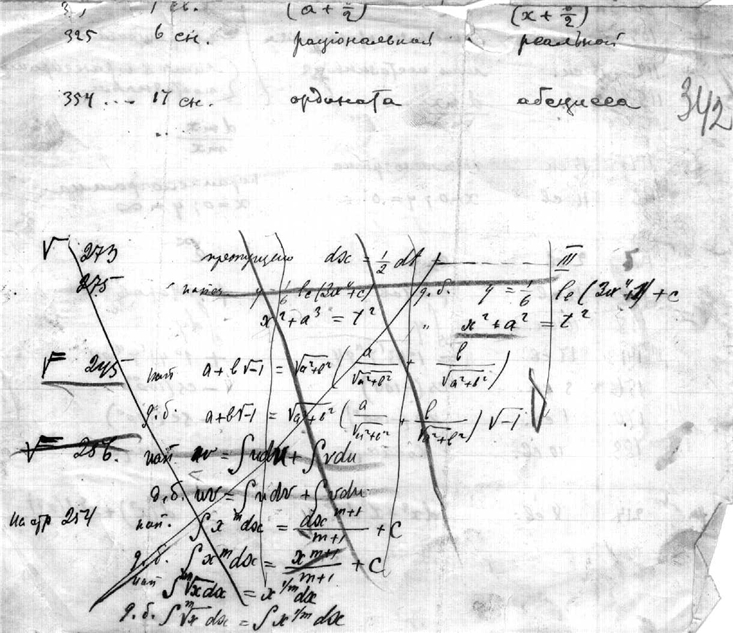 1 св. (a + n/2) (x + n/2)
325 6 сн. раціональной реальной
354 ... 17 сн. ордината абсцисса
342
√ 273 dx = 1/2 dt III
275 y = 1/6 le(3x⁴+c) д.б. y = 1/6 le(3x⁴+1)+c
x² + a³ = t² " x² + a² = t²
√= 245 нап a + b√-1 = √a²+b² (a/√a²+b² + b/√a²+b²)
д.б. a + b√-1 = √a²+b² (a/√a²+b² + b/√a²+b²) √-1
√= 256. нап uv = ∫udu + ∫vdu
д.б. uv = ∫udv + ∫vdu
на стр 254 нап. ∫x^m dx = dx^m+1/m+1 + C
д.б. ∫x^m dx = x^m+1/m+1 + C
нап ∫^m√x dx = x^1/m dx
д.б. ∫^m√x dx = ∫x^1/m dx